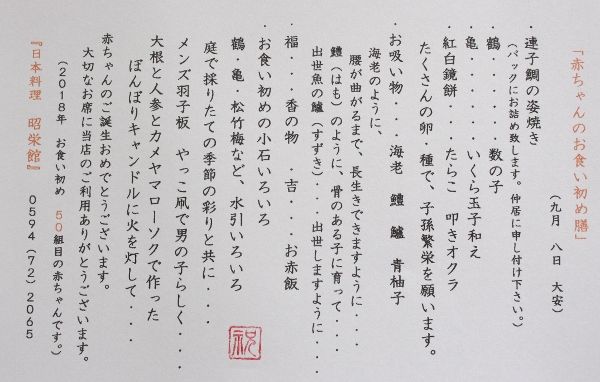 「赤ちゃんのお食い初め膳」
(九月 八日 大安)
・連子鯛の姿焼き
(パックにお詰め致します。仲居に申し付け下さい。)
・鶴・・・・数の子
・亀・・・・いくら玉子和え
・紅白鏡餅・・・たらこ 叩きオクラ
たくさんの卵・種で、子孫繁栄を願います。
・お吸い物・・・海老 鱧 鱸 青柚子
海老のように、
腰が曲がるまで、長生きできますように・・・
鱧(はも)のように、骨のある子に育って・・・
出世魚の鱸(すずき)・・・出世しますように・・・
・福・・・香の物 ・吉・・・お赤飯
・お食い初めの小石いろいろ
鶴・亀・松竹梅など、水引いろいろ
庭で採りたての季節の彩りと共に・・・
メンズ羽子板 やっこ凧で男の子らしく・・・
大根と人参とカメヤマローソクで作った
ぼんぼりキャンドルに火を灯して・・・
赤ちゃんのご誕生おめでとうございます。
大切なお席に当店のご利用ありがとうございます。
(2018年 お食い初め 50組目の赤ちゃんです。)
『日本料理 昭栄館』 0594(72)2065
祝